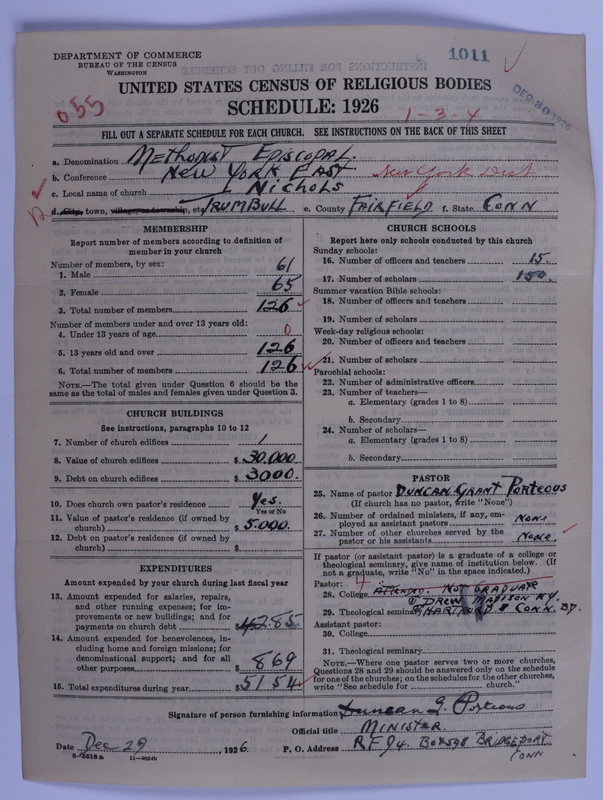 DEPARTMENT OF COMMERCE
BUREAU OF THE CENSUS
WASHINGTON
1011
055
DEC 30 1926
UNITED STATES CENSUS OF RELIGIOUS BODIES
SCHEDULE: 1926
1-3-4
FILL OUT A SEPARATE SCHEDULE FOR EACH CHURCH. SEE INSTRUCTIONS ON THE BACK OF THIS SHEET
a. Denomination METHODIST EPISCOPAL.
b. Conference NEW YORK EAST New York Dist
c. Local name of church NICHOLS
d. City, town, village, or township, etc TRUMBULL e. County FAIRFIELD f. State CONN
MEMBERSHIP
Report number of members according to definition of
member in your church
Number of members, by sex:
1. Male 61
2. Female 65
3. Total number of members 126
Number of members under and over 13 years old:
4. Under 13 years of age 0
5. 13 years old and over 126
6. Total number of members 126
NOTE.—The total given under Question 6 should be
same as the total of males and females given under Question 3.
CHURCH BUILDINGS
See instructions, paragraphs 10 to 12
7. Number of church edifices 1
8. Value of church edifices $30.000
9. Debt on church edifices $3000.
10. Does church own pastor's residence Yes.
Yes or No
11. Value of pastor's residence (if owned by
church) $5.000.
12. Debt on pastor's residence (if owned by
church) $
EXPENDITURES
Amount expended by your church during last fiscal year
13. Amount expended for salaries, repairs,
and other running expenses; for im-
provements or new buildings; and for
payments on church debt 4285
14. Amount expended for benevolences, in-
cluding home and foreign missions; for
denominational support; and for all
other purposes $869
15. Total expenditures during year $5154
CHURCH SCHOOLS
Report here only schools conducted by this church
Sunday schools:
16. Number of officers and teachers 15.
17. Number of scholars 150.
Summer vacation Bible schools:
18. Number of officers and teachers
19. Number of scholars
Week-day religious schools:
20. Number of officers and teachers
21. Number of scholars
Parochial schools:
22. Number of administrative officers
23. Number of teachers—
a. Elementary (grades 1 to 8)
b. Secondary
24. Number of scholars—
a. Elementary (grades 1 to 8)
b. Secondary
PASTOR
25. Name of pastor DUNCAN GRANT PORTEOUS
(If church has no pastor, write "None")
26. Number of ordained ministers, if any, em-
ployed as assistant pastors NONE
27. Number of other churches served by the
pastor or his assistants NONE
If pastor (or assistant pastor) is a graduate of a college or
theological seminary, give name of institution below. (If
not a graduate, write "No" in the space indicated.)
Pastor: 4
28. College ATTENDED. NOT GRADUATE
DREW MADISON
29. Theological seminary HARTFORD CONN
Assistant pastor:
30. College
31. Theological seminary
NOTE.—Where one pastor serves two or more churches,
Questions 28 and 29 should be answered only on the schedule
for one of the churches; on the schedules for the other churches,
write "See schedule for church."
Signature of person furnishing information Duncan G. Porteous
Official title MINISTER
Date Dec 29, 1926. P. O. Address R.F.D 4. BOX 598 BRIDGEPORT
CONN